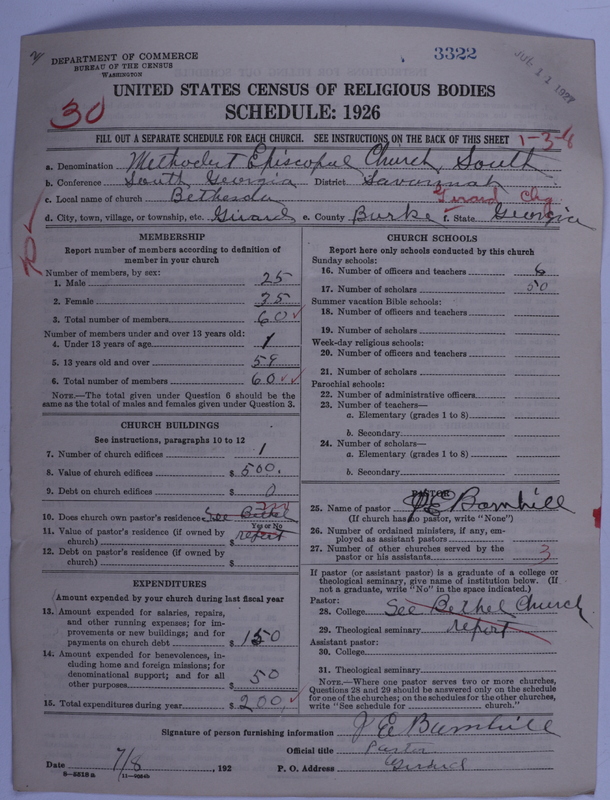 DEPARTMENT OF COMMERCE
BUREAU OF THE CENSUS
WASHINGTON
3322
JUL 11 1927
UNITED STATES CENSUS OF RELIGIOUS BODIES
SCHEDULE: 1926
30
FILL OUT A SEPARATE SCHEDULE FOR EACH CHURCH. SEE INSTRUCTIONS ON THE BACK OF THIS SHEET
1-3-4
a. Denomination Methodist Episcopal Church South
b. Conference South Georgia District Savannah
c. Local name of church Bethesda Girard Chg
d. City, town, village, or township, etc. Girard e. County Burke f. State Georgia
MEMBERSHIP
Report number of members according to definition of
member in your church
Number of members, by sex:
1. Male 25
2. Female 35
3. Total number of members 60
Number of members under and over 13 years old:
4. Under 13 years of age 1
5. 13 years old and over 59
6. Total number of members 60
NOTE.—The total given under Question 6 should be
same as the total of males and females given under Question 3.
CHURCH BUILDINGS
See instructions, paragraphs 10 to 12
7. Number of church edifices 1
8. Value of church edifices $ 500.
9. Debt on church edifices $ 0
10. Does church own pastor's residence See Bethel
Yes or No
11. Value of pastor's residence (if owned by
church) $ report
12. Debt on pastor's residence (if owned by
church) $
EXPENDITURES
Amount expended by your church during last fiscal year
13. Amount expended for salaries, repairs,
and other running expenses; for im-
provements or new buildings; and for
payments on church debt $ 150
14. Amount expended for benevolences, in-
cluding home and foreign missions; for
denominational support; and for all
other purposes $ 50
15. Total expenditures during year $ 200.
CHURCH SCHOOLS
Report here only schools conducted by this church
Sunday schools:
16. Number of officers and teachers 6
17. Number of scholars 50
Summer vacation Bible schools:
18. Number of officers and teachers
19. Number of scholars
Week-day religious schools:
20. Number of officers and teachers
21. Number of scholars
Parochial schools:
22. Number of administrative officers
23. Number of teachers—
a. Elementary (grades 1 to 8)
b. Secondary
24. Number of scholars—
a. Elementary (grades 1 to 8)
b. Secondary
PASTOR
25. Name of pastor J E Barnhill
(If church has no pastor, write "None")
26. Number of ordained ministers, if any, em-
ployed as assistant pastors
27. Number of other churches served by the
pastor or his assistants 3
If pastor (or assistant pastor) is a graduate of a college or
theological seminary, give name of institution below. (If
not a graduate, write "No" in the space indicated.)
Pastor:
28. College See Bethel Church
29. Theological seminary report
Assistant pastor:
30. College
31. Theological seminary
NOTE.—Where one pastor serves two or more churches,
Questions 28 and 29 should be answered only on the schedule
for one of the churches; on the schedules for the other churches,
write "See schedule for church."
Signature of person furnishing information J E Barnhill
Official title Pastor
Date 7/8, 192 P. O. Address Girard